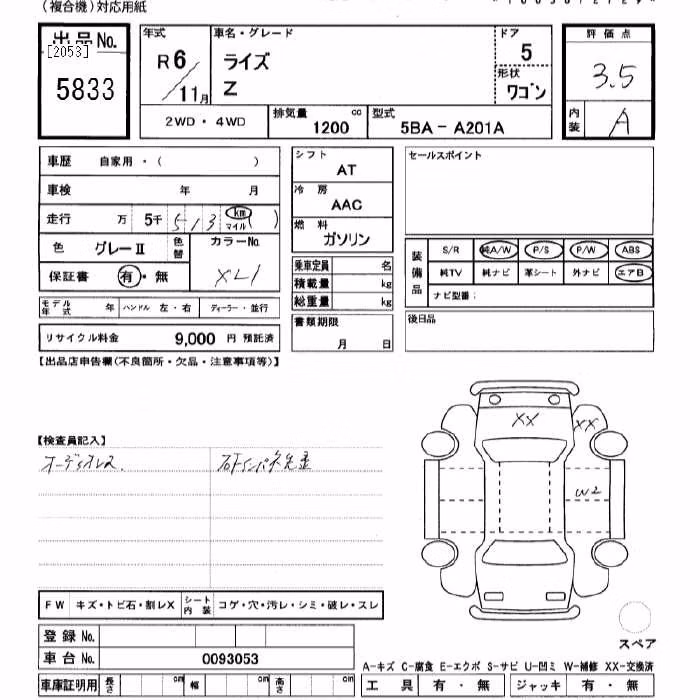 (複合機)対応用紙
出品No.
[2053]
5833
年式
R6/11月
車名・グレード
ライズ
Z
ドア
5
形状
ワゴン
評価点
3.5
内装
A
2WD・4WD
排気量
cc
1200
型式
5BA-A201A
車歴 自家用・( )
車検 年 月
走行 万 5千 5 1 3 km マイル )
色 グレーⅡ 色替 カラーNo.
保証書 有・無
モデル年式 年 ハンドル 左・右 ディーラー・並行
リサイクル料金 9,000 円 預託済
シフト
AT
冷房
AAC
燃料
ガソリン
乗車定員 名
積載量 kg
総重量 kg
書類期限
月 日
セールスポイント
装備品
S/R 純A/W P/S P/W ABS
純TV 純ナビ 革シート 外ナビ エアB
ナビ型番:
後日品
【出品店申告欄(不良箇所・欠品・注意事項等)】
【検査員記入】
オーディオレス
XX
XX
W2
FW キズ・トビ石・割レX シート内装 コゲ・穴・汚レ・シミ・破レ・スレ
登録No.
車台No. 0093053
車庫証明用 長さ cm 幅 cm 高さ cm
スペア
A-キズ C-腐食 E-エクボ S-サビ U-凹ミ W-補修 XX-交換済
工具 有・無 ジャッキ 有・無